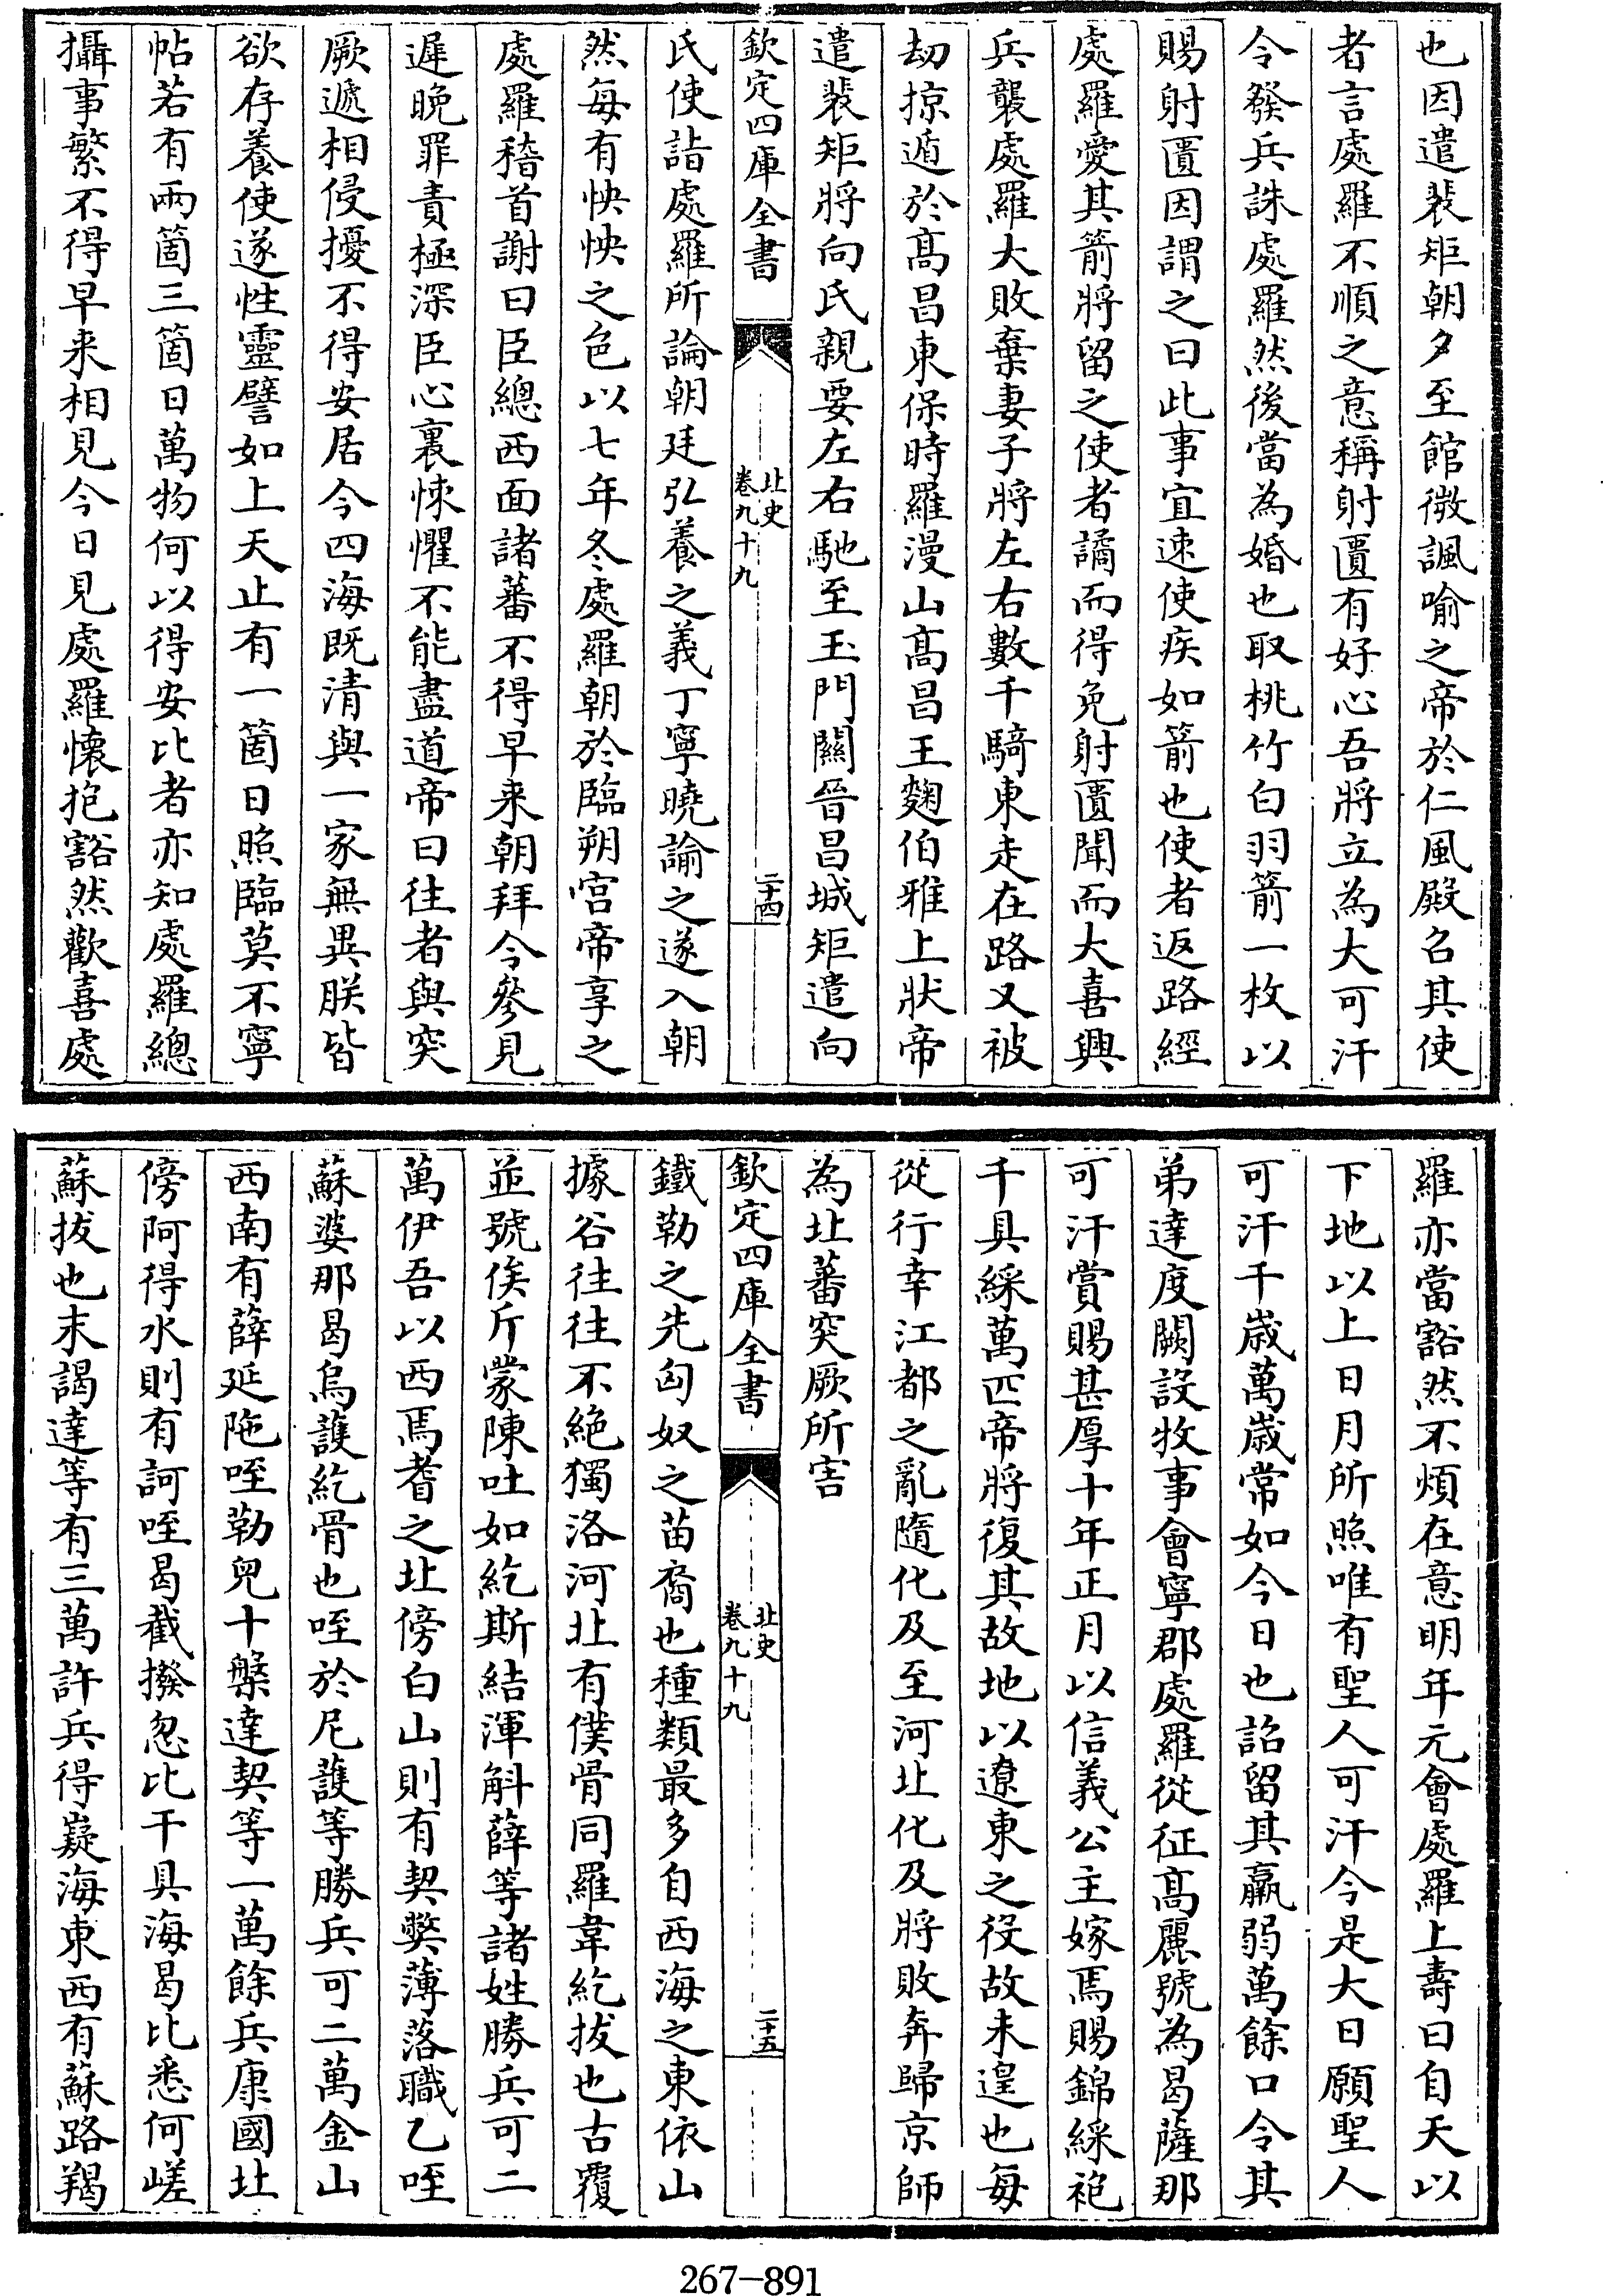 也因遣裴矩朝夕至館微諷喻之帝於仁風殿召其使
者言處羅不順之意稱射匱有好心吾將立為大可汗
令發兵誅處羅然後當為婚也取桃竹白羽箭一枚以
賜射匱因謂之曰此事宜速使疾如箭也使者返路經
處羅愛其箭將留之使者譎而得免射匱聞而大喜興
兵襲處羅大敗棄妻子將左右數千騎東走在路又被
刼掠遁於髙昌東保時羅漫山髙昌王麴伯雅上狀帝
遣裴矩將向氏親要左右馳至玉門關晉昌城矩遣向
欽定四庫全書
北史
卷九十九
二十四
氏使詣處羅所論朝廷弘養之義丁寧曉諭之遂入朝
然每有怏怏之色以七年冬處羅朝於臨朔宫帝享之
處羅稽首謝曰臣總西面諸蕃不得早来朝拜今參見
遲晚罪責極深臣心裏悚懼不能盡道帝曰往者與突
厥遞相侵擾不得安居今四海既清與一家無異朕皆
欲存養使遂性靈譬如上天止有一箇日照臨莫不寧
帖若有兩箇三箇日萬物何以得安比者亦知處羅總
攝事繁不得早来相見今日見處羅懷抱豁然歡喜處
羅亦當豁然不煩在意明年元會處羅上壽曰自天以
下地以上日月所照唯有聖人可汗今是大日願聖人
可汗千歳萬歳常如今日也詔留其羸弱萬餘口令其
弟達度闕設牧事會寧郡處羅從征髙麗號為曷薩那
可汗賞賜甚厚十年正月以信義公主嫁焉賜錦綵袍
千具綵萬匹帝將復其故地以遼東之役故未遑也每
從行幸江都之亂隨化及至河北化及將敗奔歸京師
為北蕃突厥所害
欽定四庫全書
北史
卷九十九
二十五
鐵勒之先匈奴之苗裔也種類最多自西海之東依山
據谷往往不絶獨洛河北有僕骨同羅韋紇拔也古覆
並號俟斤蒙陳吐如紇斯結渾斛薛等諸姓勝兵可二
萬伊吾以西焉耆之北傍白山則有契弊薄落職乙咥
蘇婆那曷烏䕶紇骨也咥於尼䕶等勝兵可二萬金山
西南有薛延陁咥勒兒十槃達契等一萬餘兵康國北
傍阿得水則有訶咥曷截撥忽比干具海曷比悉何嵯
蘇拔也末謁達等有三萬許兵得嶷海東西有蘇路羯
267-891